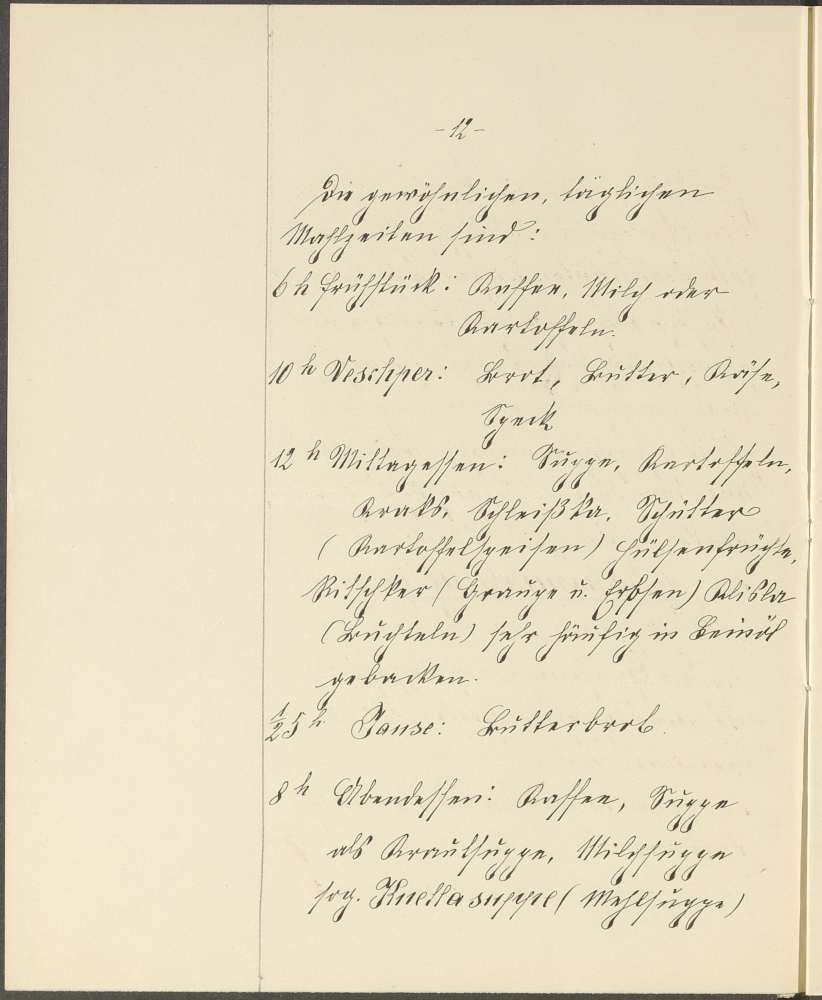 - 12 -
Die gewöhnlichen, täglichen
Mahlzeiten sind:
6 h Frühstück: Kaffee, Milch oder
Kartoffeln.
10 h Veschper: Brot, Butter, Käse,
Speck
12 h Mittagessen: Suppe, Kartoffeln,
Kraks, Schleißka, Schütter
(Kartoffelspeisen) Hülsenfrüchte,
Ritschker (Graupe u. Erbsen) Klisla
(Buchteln) sehr häufig in Leinöl
gebacken.
1/2 5 h Jause: Butterbrot
8 h Abendessen: Kaffee, Suppe
als Krautsuppe, Milchsuppe
sog. Knettasuppe (Mehlsuppe)